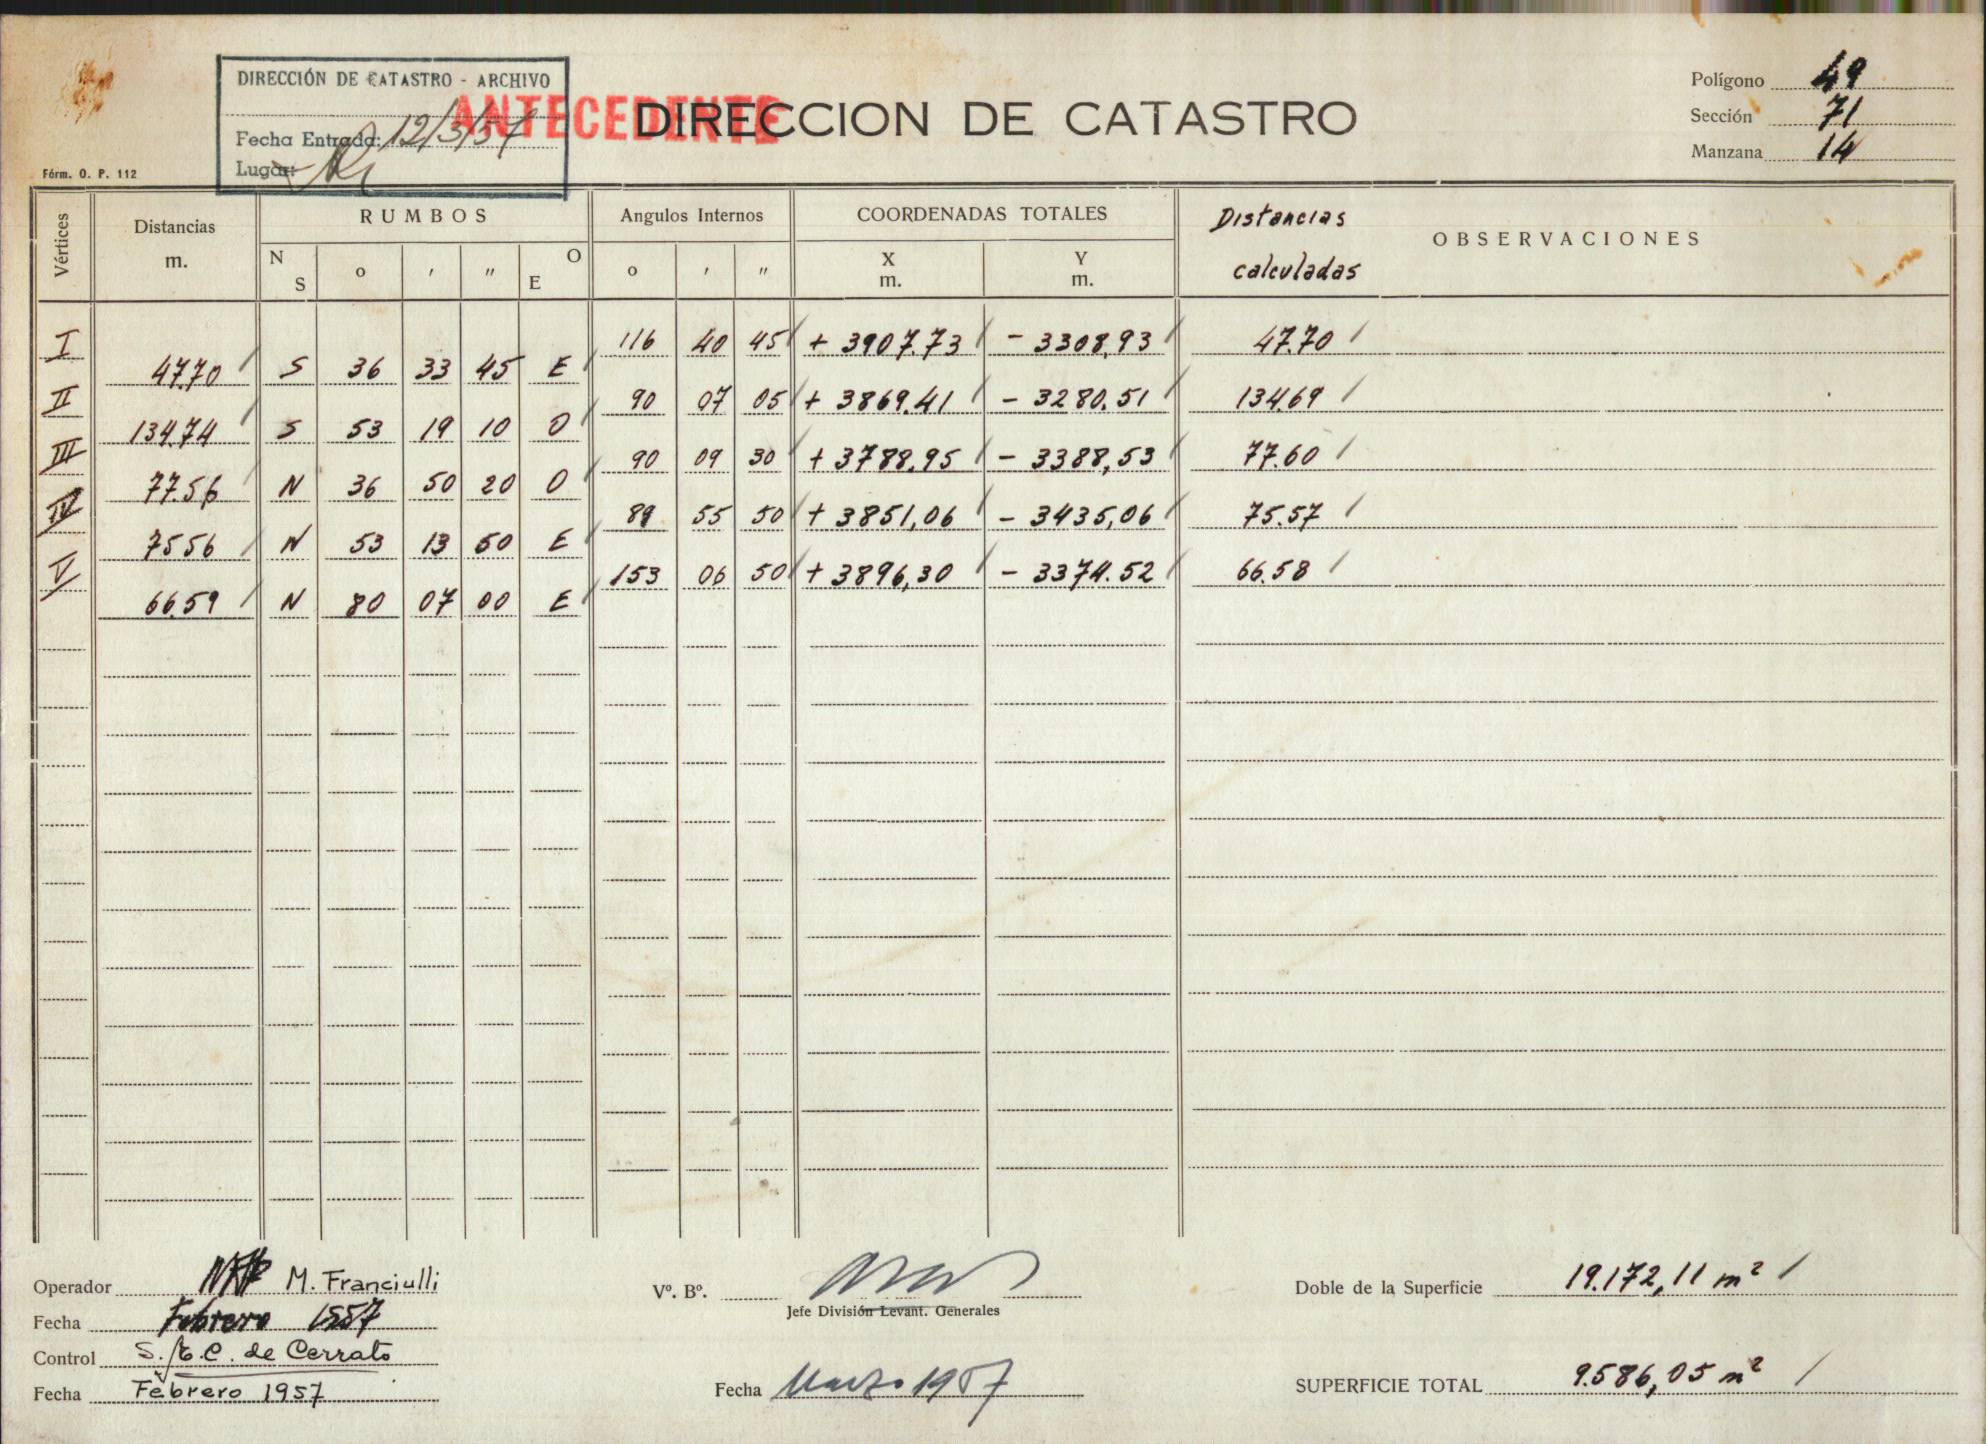 DIRECCIÓN DE CATASTRO - ARCHIVO
Fecha Entrada: 12/3/57
Lugar:
ANTECEDENTE
DIRECCION DE CATASTRO
Polígono 49
Sección 71
Manzana 14
Fórm. O. P. 112
Vértices Distancias m. RUMBOS N S o ′ ″ O E Angulos Internos o ′ ″ COORDENADAS TOTALES X m. Y m. Distancias calculadas OBSERVACIONES
I 116 40 45 + 3907.73 - 3308,93 47.70
47.70 S 36 33 45 E
II 90 07 05 + 3869.41 - 3280.51 134.69
134.74 S 53 19 10 O
III 90 09 30 + 3788.95 - 3388,53 77.60
77.56 N 36 50 20 O
IV 89 55 50 + 3851,06 - 3435,06 75.57
75.56 N 53 13 50 E
V 153 06 50 + 3896,30 - 3374.52 66.58
66.59 N 80 07 00 E
Operador M. Franciulli
Fecha Febrero 1957
Control S. E.C. de Cerrato
Fecha Febrero 1957
Vº. Bº.
Jefe División Levant. Generales
Fecha Marzo 1957
Doble de la Superficie 19.172,11 m²
SUPERFICIE TOTAL 9.586,05 m²